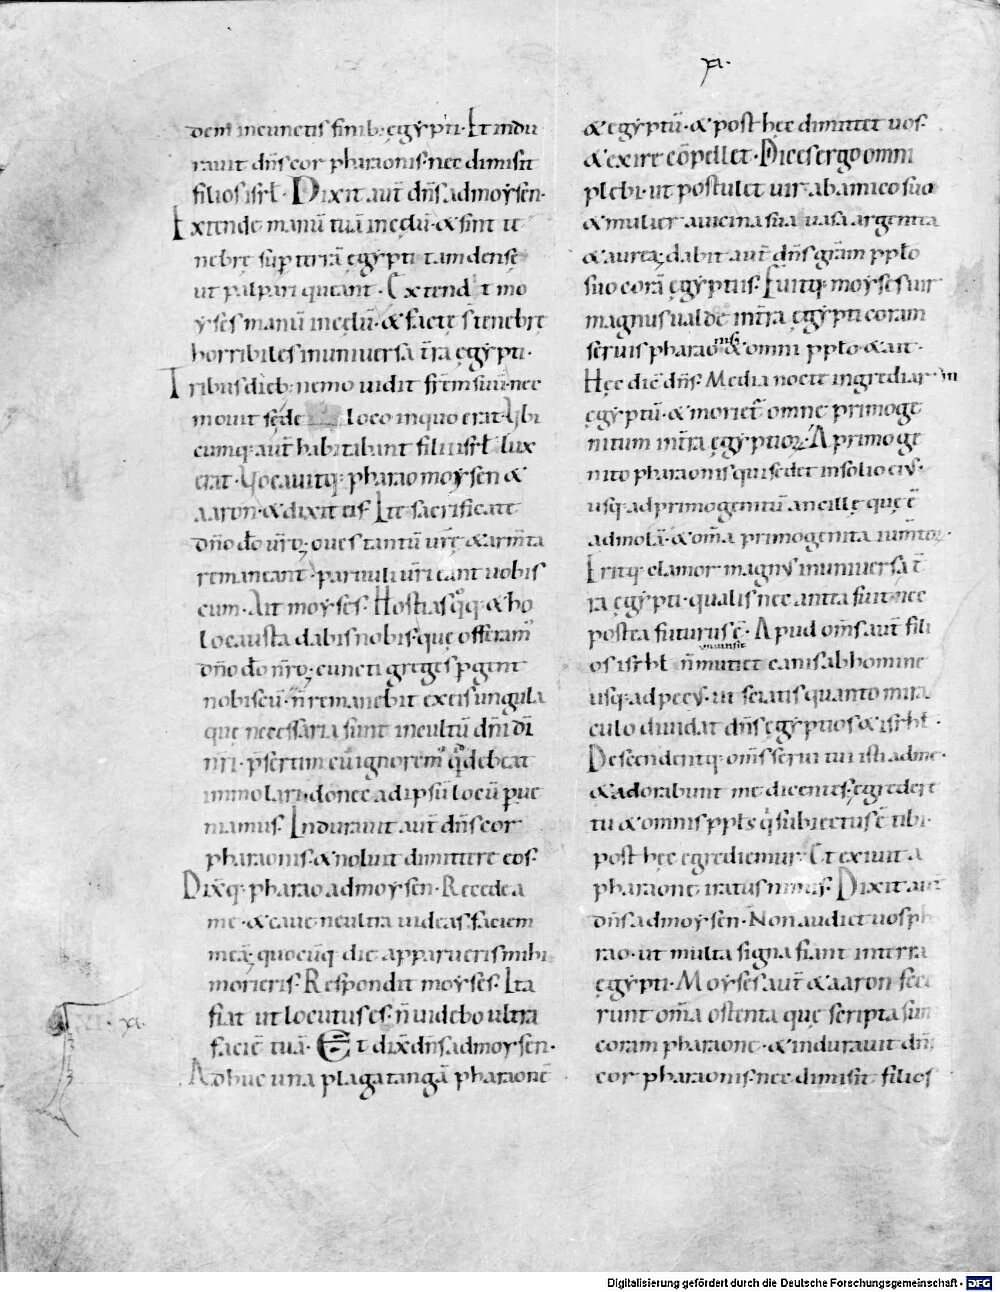 xi.
dem incunctis finib; ęgypti· Et indu
rauit dn̄s cor pharaonis· nec dimisit
filios isrł· Dixit aut̄ dn̄s ad moysen·
Extende manū tuā in cęlū· & sint te
nebrę sup terrā ęgypti tam densę
ut palpari queant· Extendit mo
yses manū in cęlū· & factę s̄ tenebrę
horribiles in uniuersa t̄ra ęgypti·
Tribus dieb; nemo uidit fr̄em suū· nec
mouit se de loco in quo erat· Ubi
cumq; aut̄ habitabant filii isrł lux
erat· Uocauitq; pharao moysen &
aaron· & dixit eis· Ite sacrificate
dn̄o dō ur̄o; oues tantū ur̄ę & arm̄ta
remaneant· paruuli ur̄i eant uobis
cum· Ait moyses· Hostias q̊q; & ho
locausta dabis nobis· quę offeram
dn̄o dō nr̄o; cuncti greges p̄gent
nobiscū· n̄ remanebit ex eis ungula
quę necessaria sunt in cultū dn̄i dī
nr̄i· p̄sertim cū ignorem qd debeat
immolari· donec ad ipsū locū perue
niamus· Indurauit aut̄ dn̄s cor
pharaonis· & noluit dimittere eos·
Dix̄q; pharao ad moysen· Recede a
me· & caue ne ultra uideas faciem
meā; quocūq; die apparueris mihi
morieris· Respondit moyses· Ita
fiat ut locutus es· n̄ uidebo ultra
faciē tuā· Et dix̄ dn̄s ad moysen·
xi.
Adhuc una plaga tangā pharaonē
& ęgyptū· & post hęc dimittet uos·
& exire cōpellet· Dices ergo omni
plebi· ut postulet uir ab amico suo
& mulier a uicina sua uasa argentea
& aurea; dabit aut̄ dn̄s grām pplo
suo corā ęgyptiis· Fuitq; moyses uir
magnus ualde in t̄ra ęgypti coram
seruis pharaonis & omni pplo & ait·
Hęc dic̄ dn̄s· Media nocte ingrediar in
ęgyptū· & moriet̄ omne primoge
nitum in t̄ra ęgyptioꝝ· A primoge
nito pharaonis qui sedet in solio eius·
usq; ad primogenitū ancillę quę ē
ad molā· & om̄a primogenita ium̄toꝝ·
Eritq; clamor magnus in uniuersa t̄
ra ęgypti· qualis nec antea fuit· nec
postea futurus ē· Apud om̄s aut̄ fili
os isrhł n̄ mutiet canis ab homine
usq; ad pecus· ut sciatis quanto mira
culo diuidat dn̄s ęgyptios & isrhł·
Descendentq; om̄s serui tui isti ad me·
& adorabunt me dicentes· egredere
tu & omnis ppls q̇ subiectus ē tibi·
post hęc egrediemur· Et exiuit a
pharaone iratus nimis· Dixit aut̄
dn̄s ad moysen· Non audiet uos pha
rao· ut multa signa fiant in terra
ęgypti· Moyses aut̄ & aaron fece
runt om̄a ostenta quę scripta sunt
coram pharaone· & indurauit dn̄s
cor pharaonis· nec dimisit filios
Digitalisierung gefördert durch die Deutsche Forschungsgemeinschaft - DFG